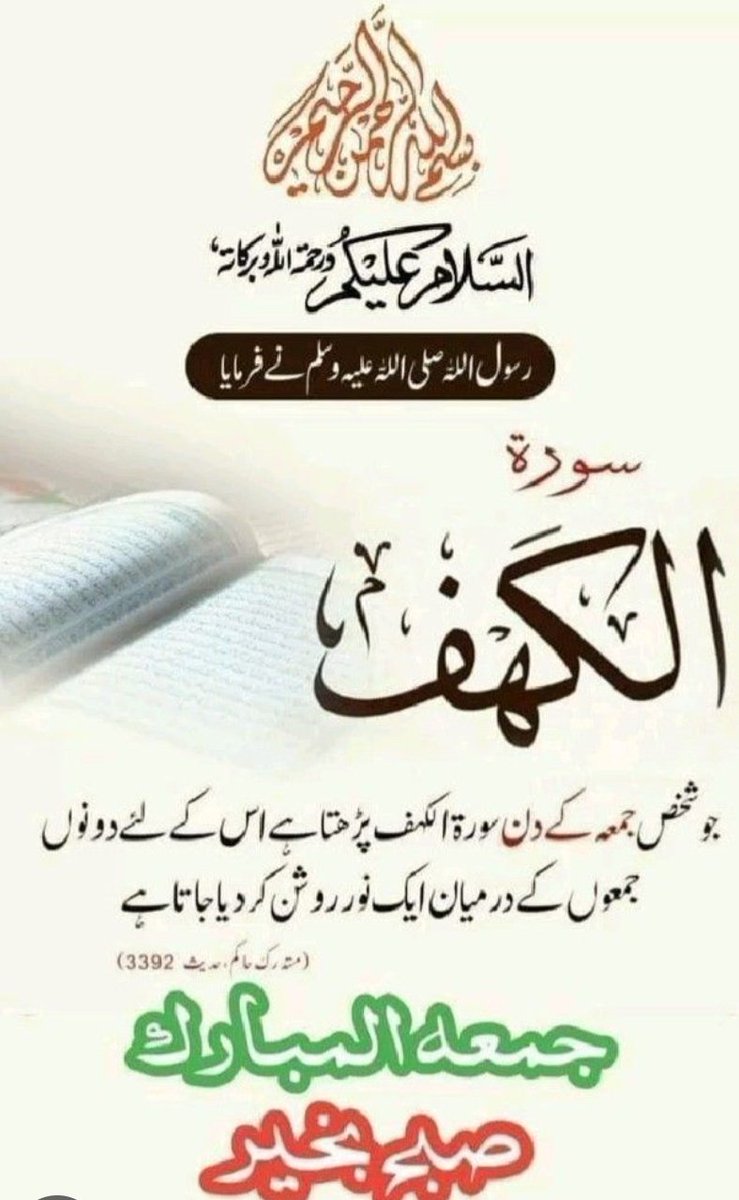 بسم الله الرحمن الرحيم
السلام علیکم ورحمۃ اللہ وبرکاتہ
رسول اللہ صلی اللہ علیہ وسلم نے فرمایا
سورة
الكهف
جو شخص جمعہ کے دن سورۃ الکہف پڑھتا ہے اس کے لئے دونوں
جمعوں کے درمیان ایک نور روشن کر دیا جاتا ہے
(مستدرک حاکم، حدیث 3392)
جمعه المبارك
صبح بخیر